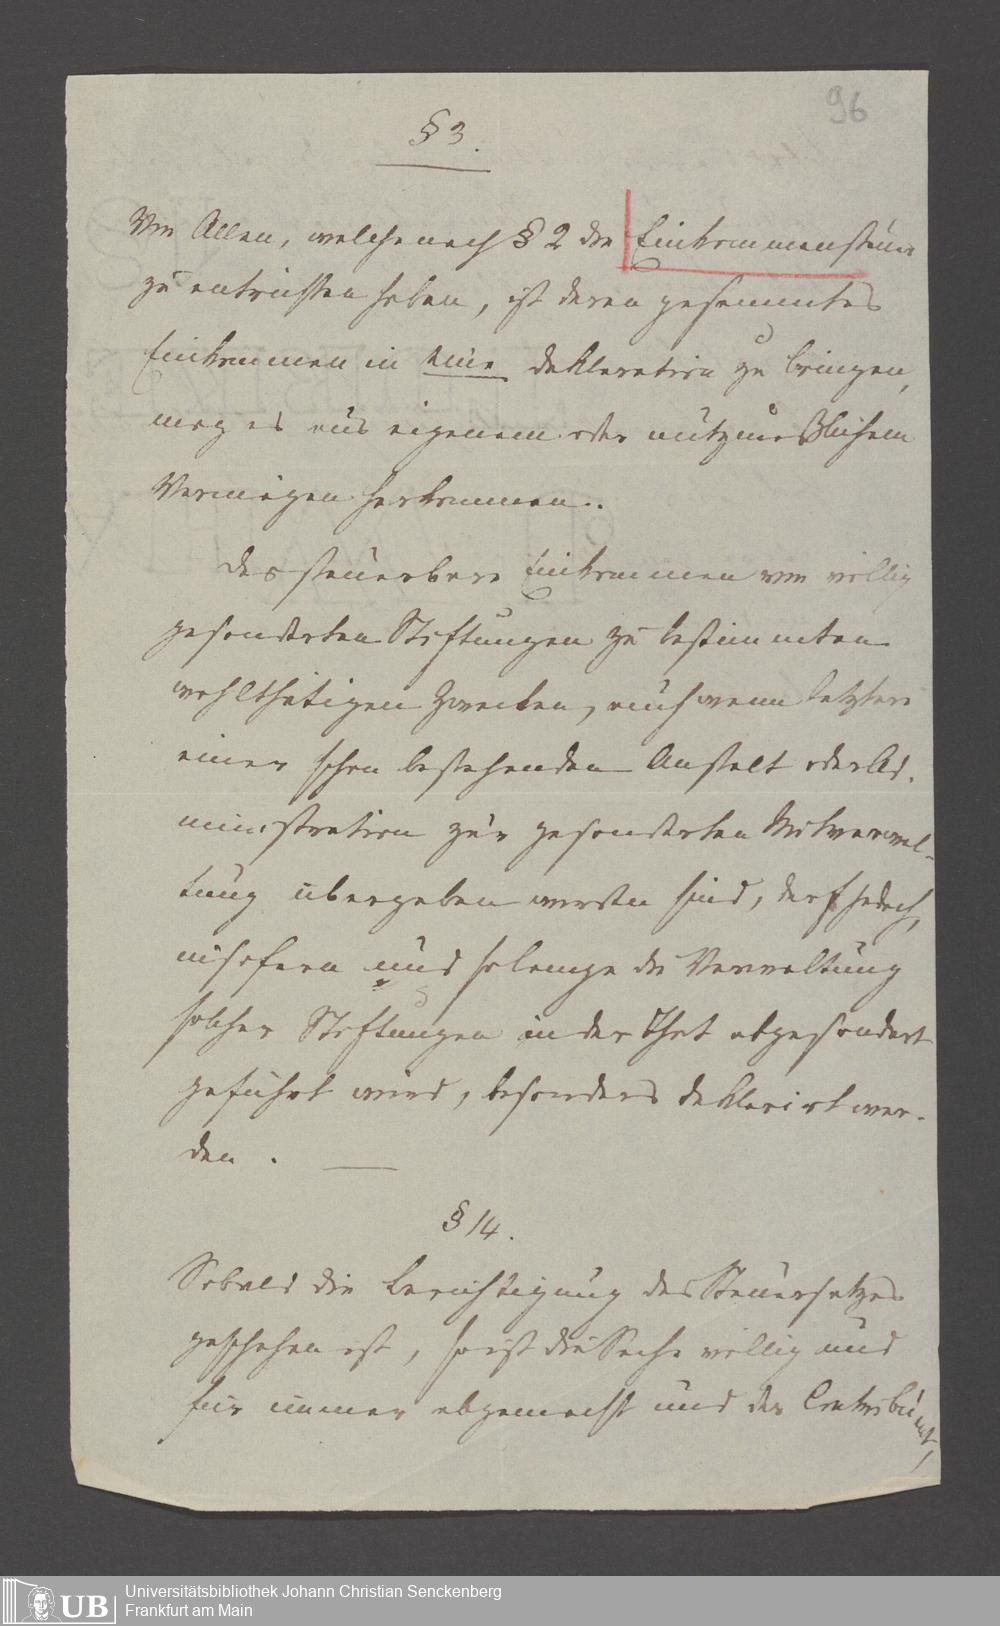 96
§ 3.
Von Allen, welche nach § 2 die Einkommensteuer
zu entrichten haben, ist deren gesammtes
Einkommen in eine Deklaration zu bringen,
mag es aus eigenem oder nutznießlichem
Vermögen herkommen.
Das steuerbare Einkommen von völlig
gesonderten Stiftungen zu bestimmten
wohlthätigen Zwecken, auch wenn letztere
einer schon bestehenden Anstalt oder Ad-
ministration zur gesonderten Mitverwal-
tung übergeben worden sind, darf jedoch,
insofern und solange die Verwaltung
solcher Stiftungen in der That abgesondert
geführt wird, besonders deklarirt wer-
den.
§ 14.
Sobald die Berichtigung des Steuersatzes
geschehen ist, so ist die Sache völlig und
für immer abgemacht und der Contribuent,
UB
Universitätsbibliothek Johann Christian Senckenberg
Frankfurt am Main